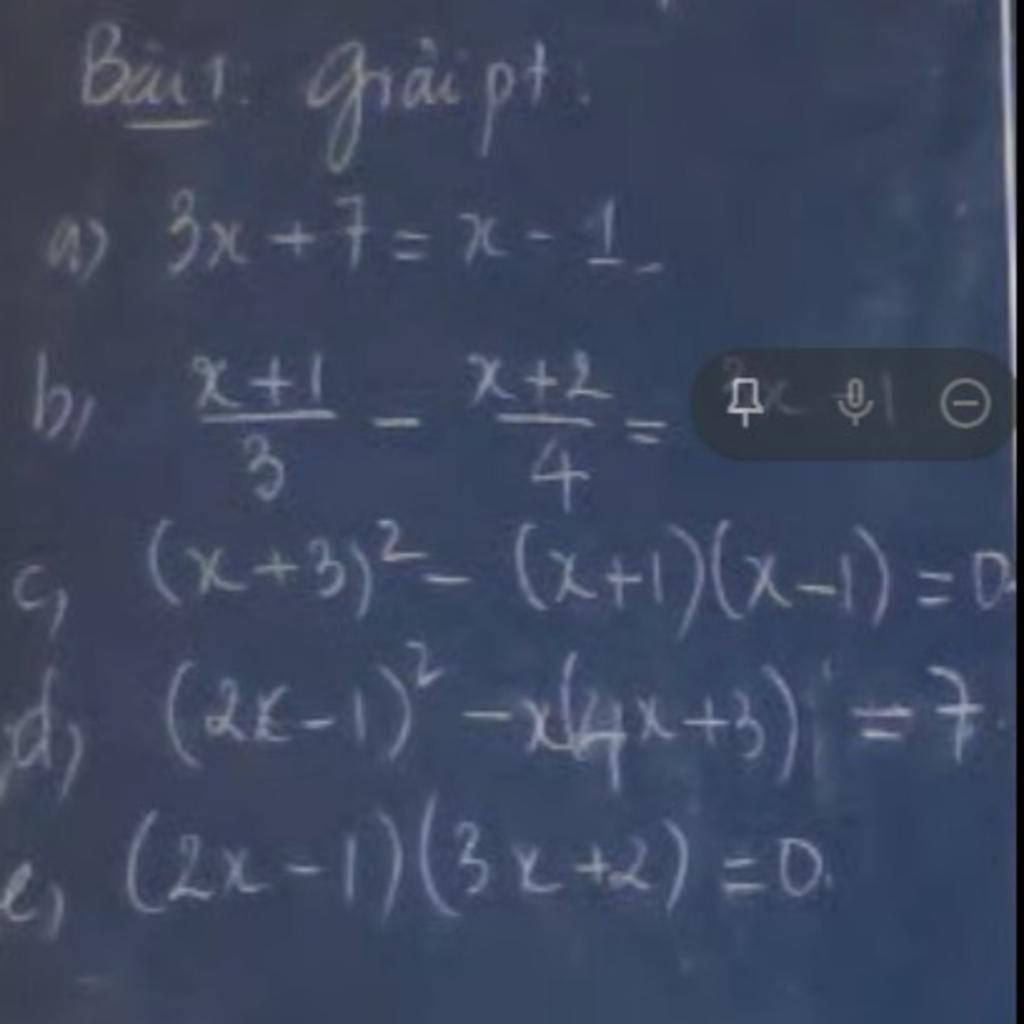 Bài 1: Giải pt:
a) 3x + 7 = x - 1
b, \frac{x+1}{3} - \frac{x+2}{4} =
c, (x+3)² - (x+1)(x-1) = 0
d, (2x-1)² - x(4x+3) = 7
e, (2x-1)(3x+2) = 0